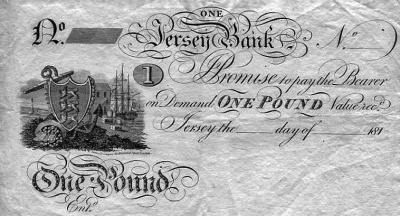 ONE
No. Jersey Bank No.
1 Promise to pay the Bearer
on Demand ONE POUND Value recd.
Jersey the day of 181
One Pound
Entd.